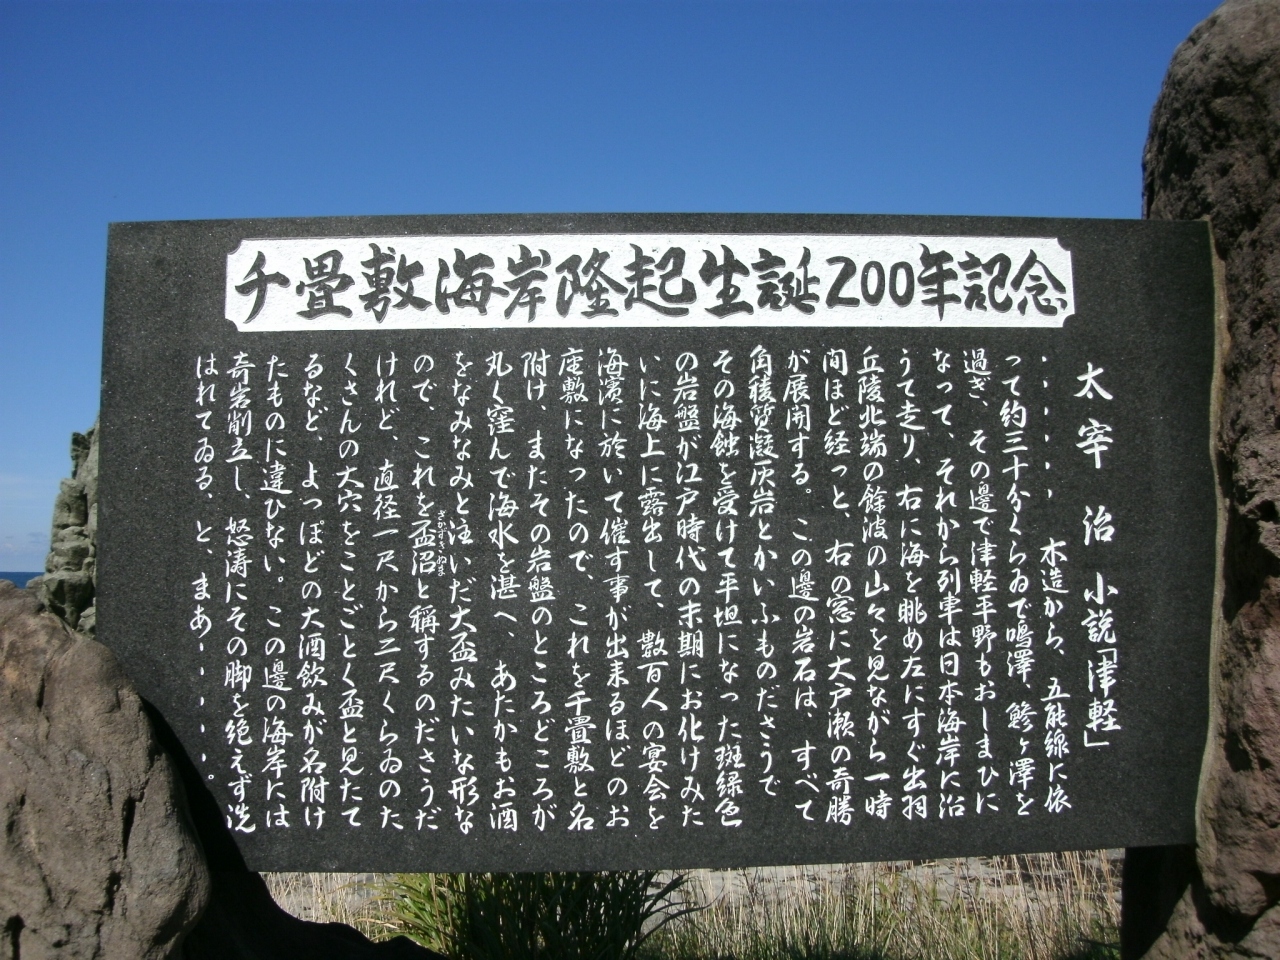 千畳敷海岸隆起生誕200年記念
太宰 治 小説「津軽」
・・・・・木造から、五能線に依
って約三十分くらゐで鳴澤、鰺ヶ澤を
過ぎ、その邊で津軽平野もおしまひに
なって、それから列車は日本海岸に沿
うて走り、右に海を眺め左にすぐ出羽
丘陵北端の餘波の山々を見ながら一時
間ほど経つと、右の窓に大戸瀬の奇勝
が展開する。この邊の岩石は、すべて
角稜質凝灰岩とかいふものださうで
その海蝕を受けて平坦になった斑緑色
の岩盤が江戸時代の末期にお化けみた
いに海上に露出して、數百人の宴会を
海濱に於いて催す事が出来るほどのお
座敷になったので、これを千畳敷と名
附け、またその岩盤のところどころが
丸く窪んで海水を湛へ、あたかもお酒
をなみなみと注いだ大盃みたいな形な
ので、これを盃沼と稱するのださうだ
さかずきぬま
けれど、直径一尺から二尺くらゐのた
くさんの大穴をことごとく盃と見たて
るなど、よっぽどの大酒飲みが名附け
たものに違ひない。この邊の海岸には
奇岩削立し、怒涛にその脚を絶えず洗
はれてゐる、と、まあ・・・・・。